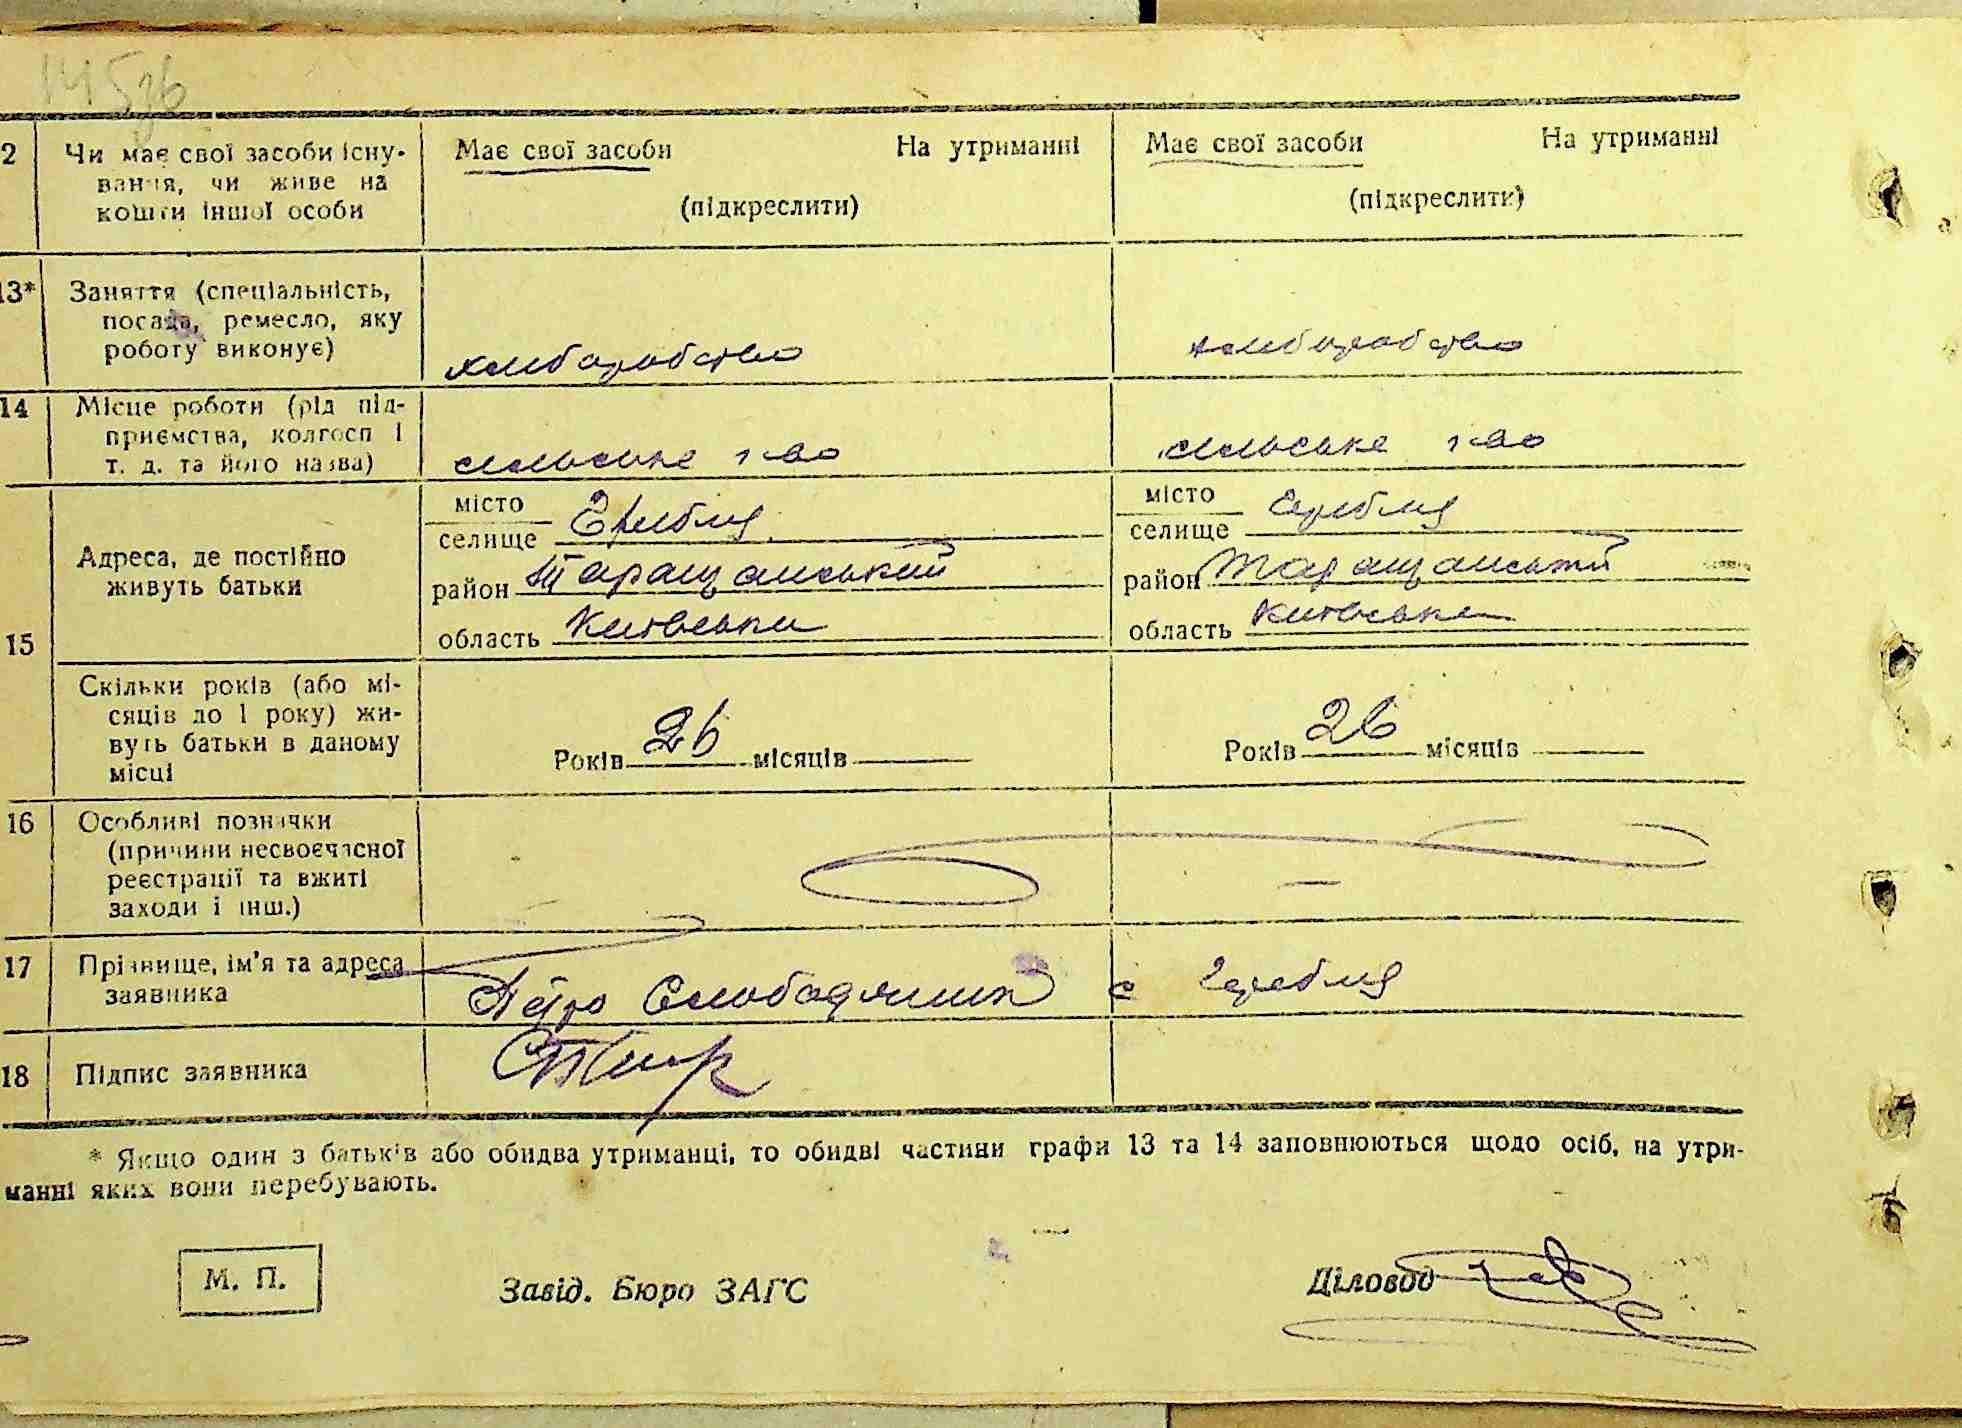 145зв
2 Чи має свої засоби існу-
вання, чи живе на
кошти іншої особи
Має свої засоби На утриманні
(підкреслити)
Має свої засоби На утриманні
(підкреслити)
13* Заняття (спеціальність,
посада, ремесло, яку
роботу виконує)
хліборобство
хліборобство
14 Місце роботи (рід під-
приємства, колгосп і
т. д. та його назва)
сільське г-во
сільське г-во
15 Адреса, де постійно
живуть батьки
місто
селище Гребля
район Таращанський
область Київська
місто
селище Гребля
район Таращанський
область Київська
Скільки років (або мі-
сяців до 1 року) жи-
вуть батьки в даному
місці
Років 26 місяців
Років 26 місяців
16 Особливі позначки
(причини несвоєчасної
реєстрації та вжиті
заходи і інш.)
17 Прізвище, ім'я та адреса
заявника
Петро Слободяник с Гребля
18 Підпис заявника
* Якщо один з батьків або обидва утриманці, то обидві частини графи 13 та 14 заповнюються щодо осіб, на утри-
манні яких вони перебувають.
М. П.
Завід. Бюро ЗАГС
Діловод